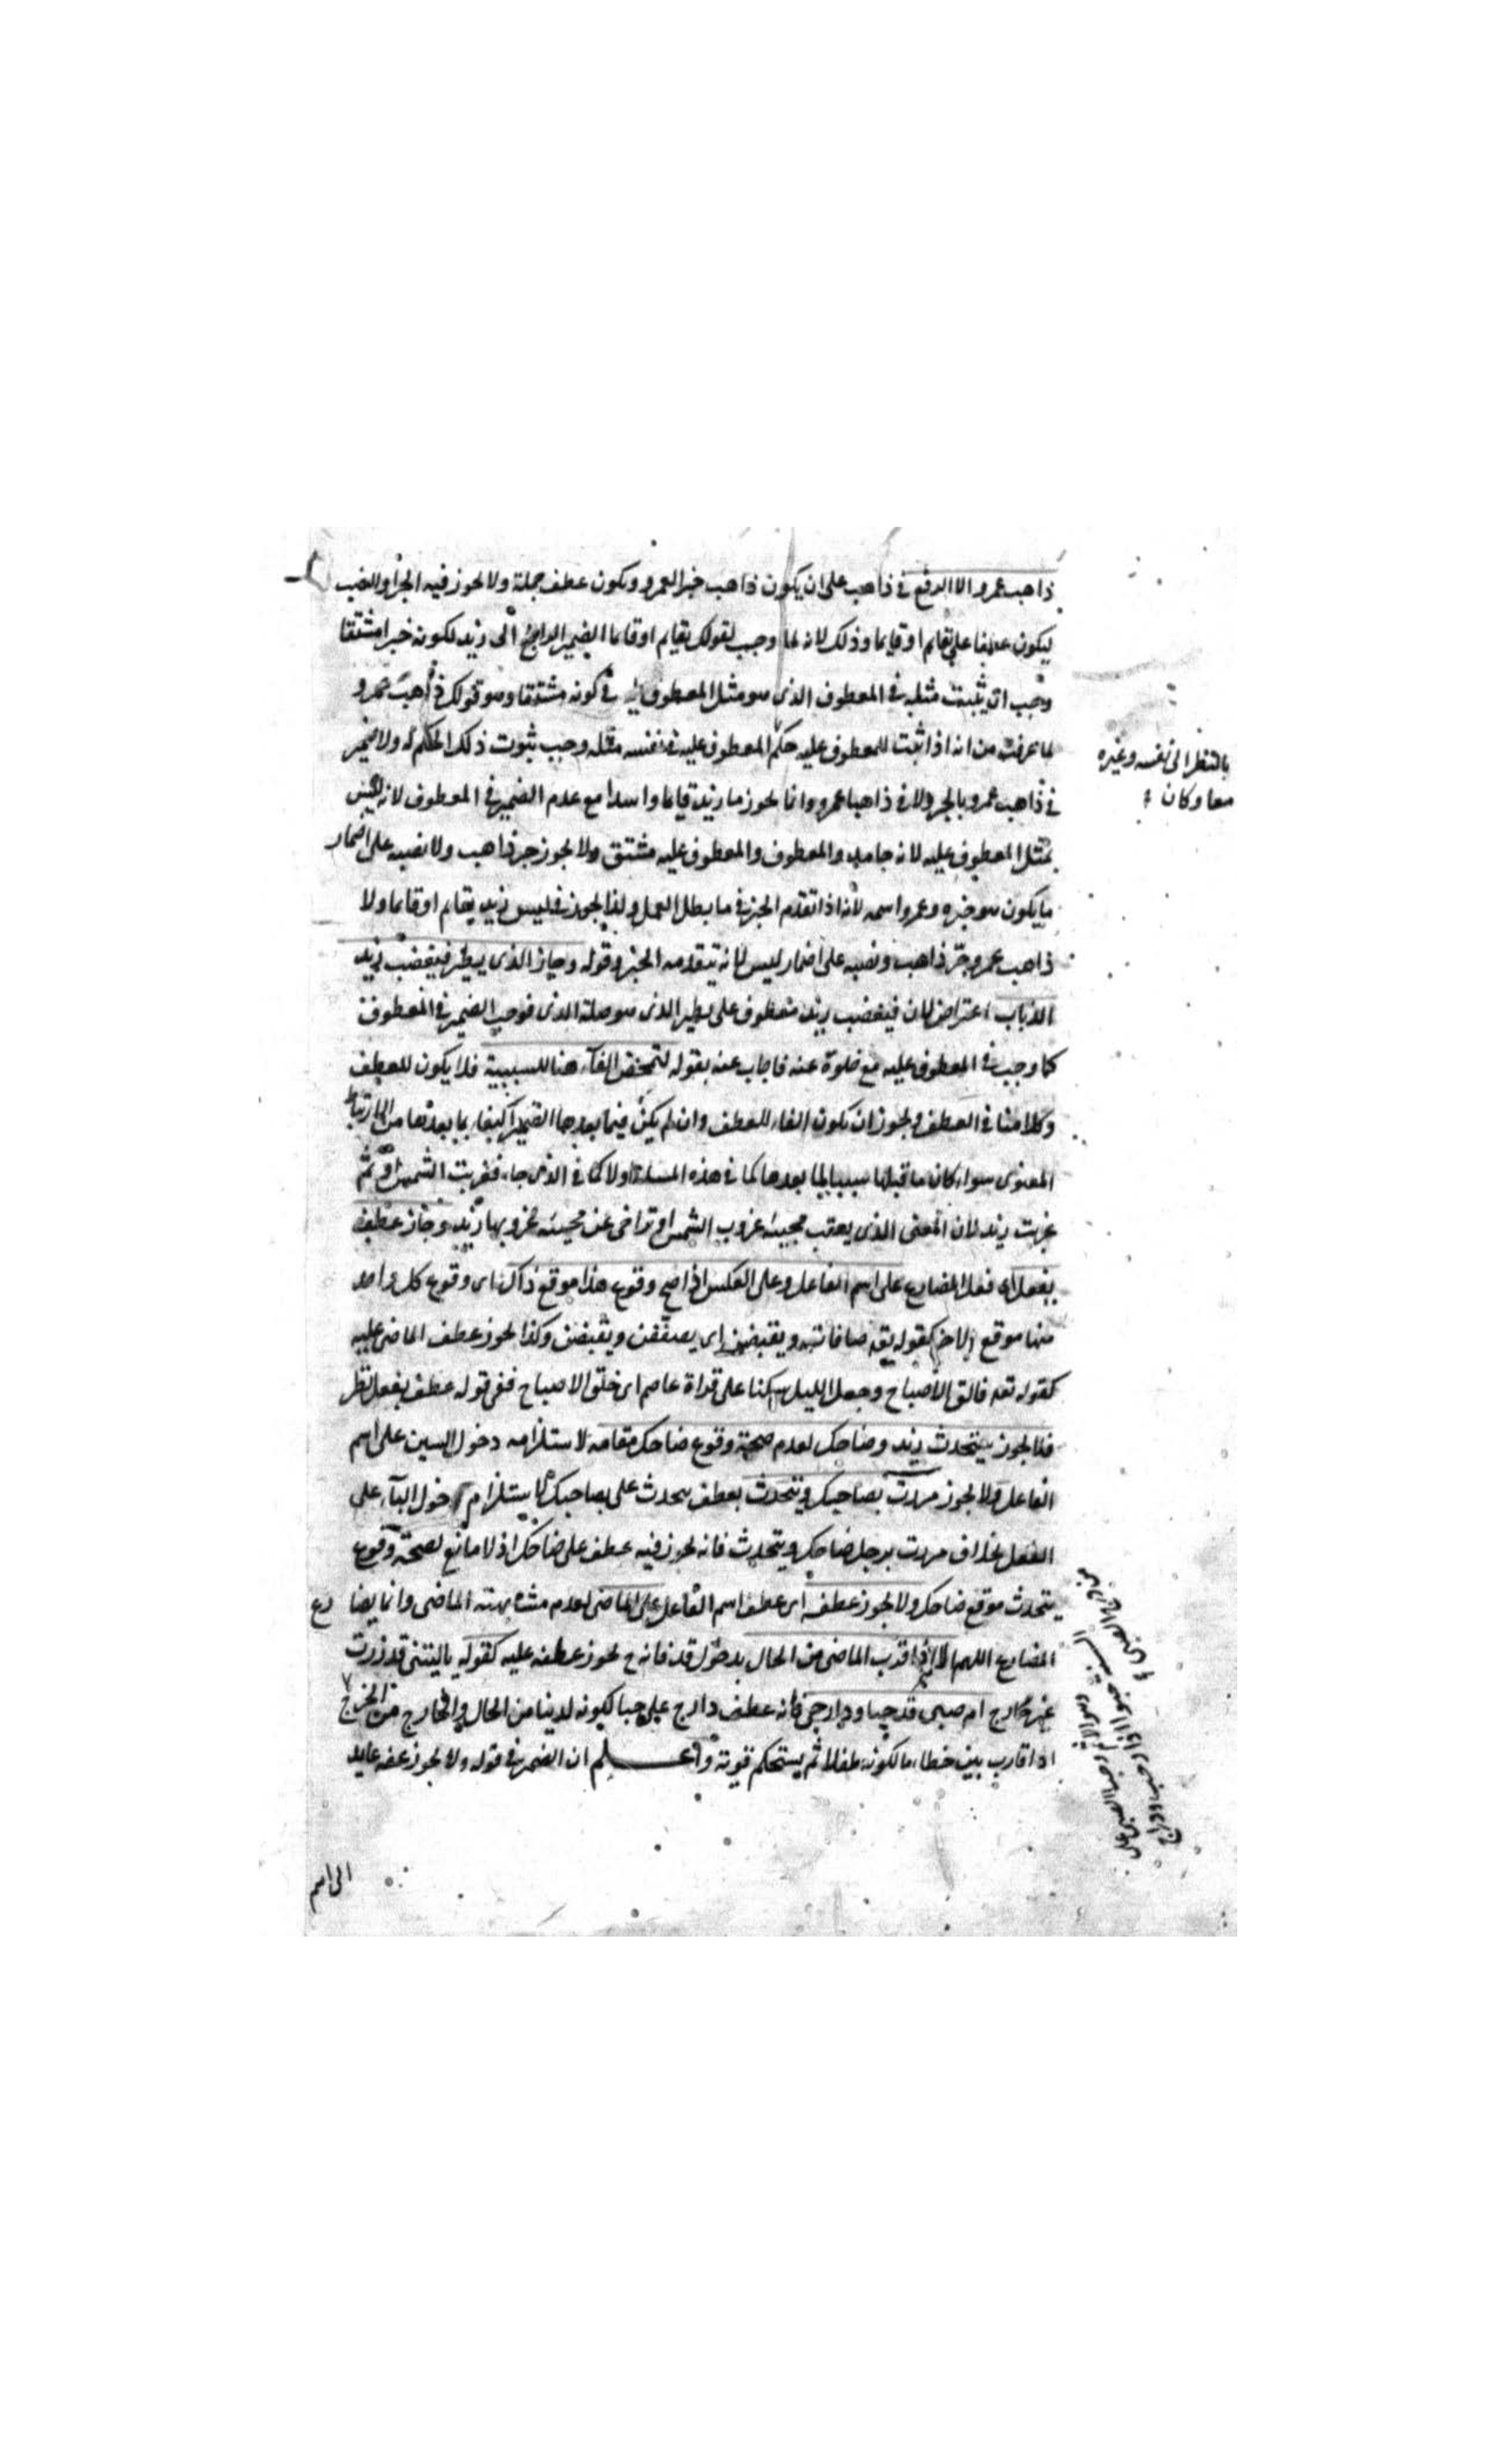 ذاهب عمرو الا الرفع في ذاهب على ان يكون ذاهب خبرا لعمرو ويكون عطف جملة ولا يجوز فيه الجر او النصب
ليكون عطفا على بقايم او قايما وذلك لانه لما وجب لقولك بقايم او قايما الضمير الراجع الى زيد لكونه خبرا مشتقا
وجب ان يثبت مثله في المعطوف الذي هو مثل المعطوف عليه في كونه مشتقا وهو قولك ذاهب عمرو
لما عرفت من انه اذا ثبت للمعطوف عليه حكم المعطوف عليه في نفسه مثله وجب ثبوت ذلك الحكم له ولا ضمير
بالنظر الى نفسه وغيره
معا وكان
في ذاهب عمرو بالجر ولا في ذاهبا عمرو وانما يجوز ما زيد قايما واسدا مع عدم الضمير في المعطوف لانه ليس
بمثل المعطوف عليه لانه جامد والمعطوف والمعطوف عليه مشتق ولا يجوز جر ذاهب ولا نصبه على اضمار
ما يكون هو خبره وعمرو اسمه لانه اذا تقدم الخبر في ما بطل العمل ولذا يجوز في ليس زيد بقايم او قايما ولا
ذاهب عمرو جر ذاهب ونصبه على اضمار ليس لانه يتقدمه الخبر وقوله وجاز الذي يطير فيغضب زيد
الذباب اعتراض لان فيغضب زيد معطوف على يطير الذي هو صلة الذي فوجب الضمير في المعطوف
كما وجب في المعطوف عليه مع خلوه عنه فاجاب عنه بقوله لتمحض الفاء هنا للسببية فلا يكون للعطف
وكلامنا في العطف ويجوز ان يكون الفاء للعطف وان لم يكن فيما بعدها الضمير اكتفاء بما بعدها من الارتباط
المعنوي سواء كان ما قبلها سببا لما بعدها كما في هذه المسئلة او لا كما في الذي جاء فغربت الشمس او ثم
غربت زيد لان المعنى الذي يعقب مجيئه غروب الشمس او تراخى عن مجيئه غروبها زيد وجاز عطف
يفعل اي فعل المضارع على اسم الفاعل وعلى العكس اذا صح وقوع هذا موقع ذاك اي وقوع كل واحد
منهما موقع الاخر كقوله تعه صافات ويقبضن اي يصففن ويقبضن وكذا يجوز عطف الماضي عليه
كقوله تعه فالق الاصباح وجعل الليل سكنا على قراة عاصم اي خلق الاصباح ففي قوله عطف يفعل نظر
فلا يجوز سيتحدث زيد وضاحك لعدم صحة وقوع ضاحك مقامه لاستلزامه دخول السين على اسم
الفاعل ولا يجوز مررت بضاحك ويتحدث بعطف يتحدث على بضاحك لاستلزام دخول الباء على
الفعل بخلاف مررت برجل ضاحك ويتحدث فانه يجوز فيه عطف على ضاحك اذ لا مانع لصحة وقوع
يتحدث موقع ضاحك ولا يجوز عطفه اي عطف اسم الفاعل على الماضي لعدم مشابهته الماضي وانما يضا رع
المضارع اللهم الا اذا قرب الماضي من الحال بدخول قد فانه ح يجوز عطفه عليه كقوله ياليتني قد زرت
غير خارج ام صبي قد حبا ودارج فانه عطف دارج على حبا لكونه لدينا من الحال والخارج من الخرج
اذا قارب بين خطاء ما لكونه طفلا ثم يستحكم قوته واعلم ان الضمير في قوله ولا يجوز عطفه عايد
الى اسم